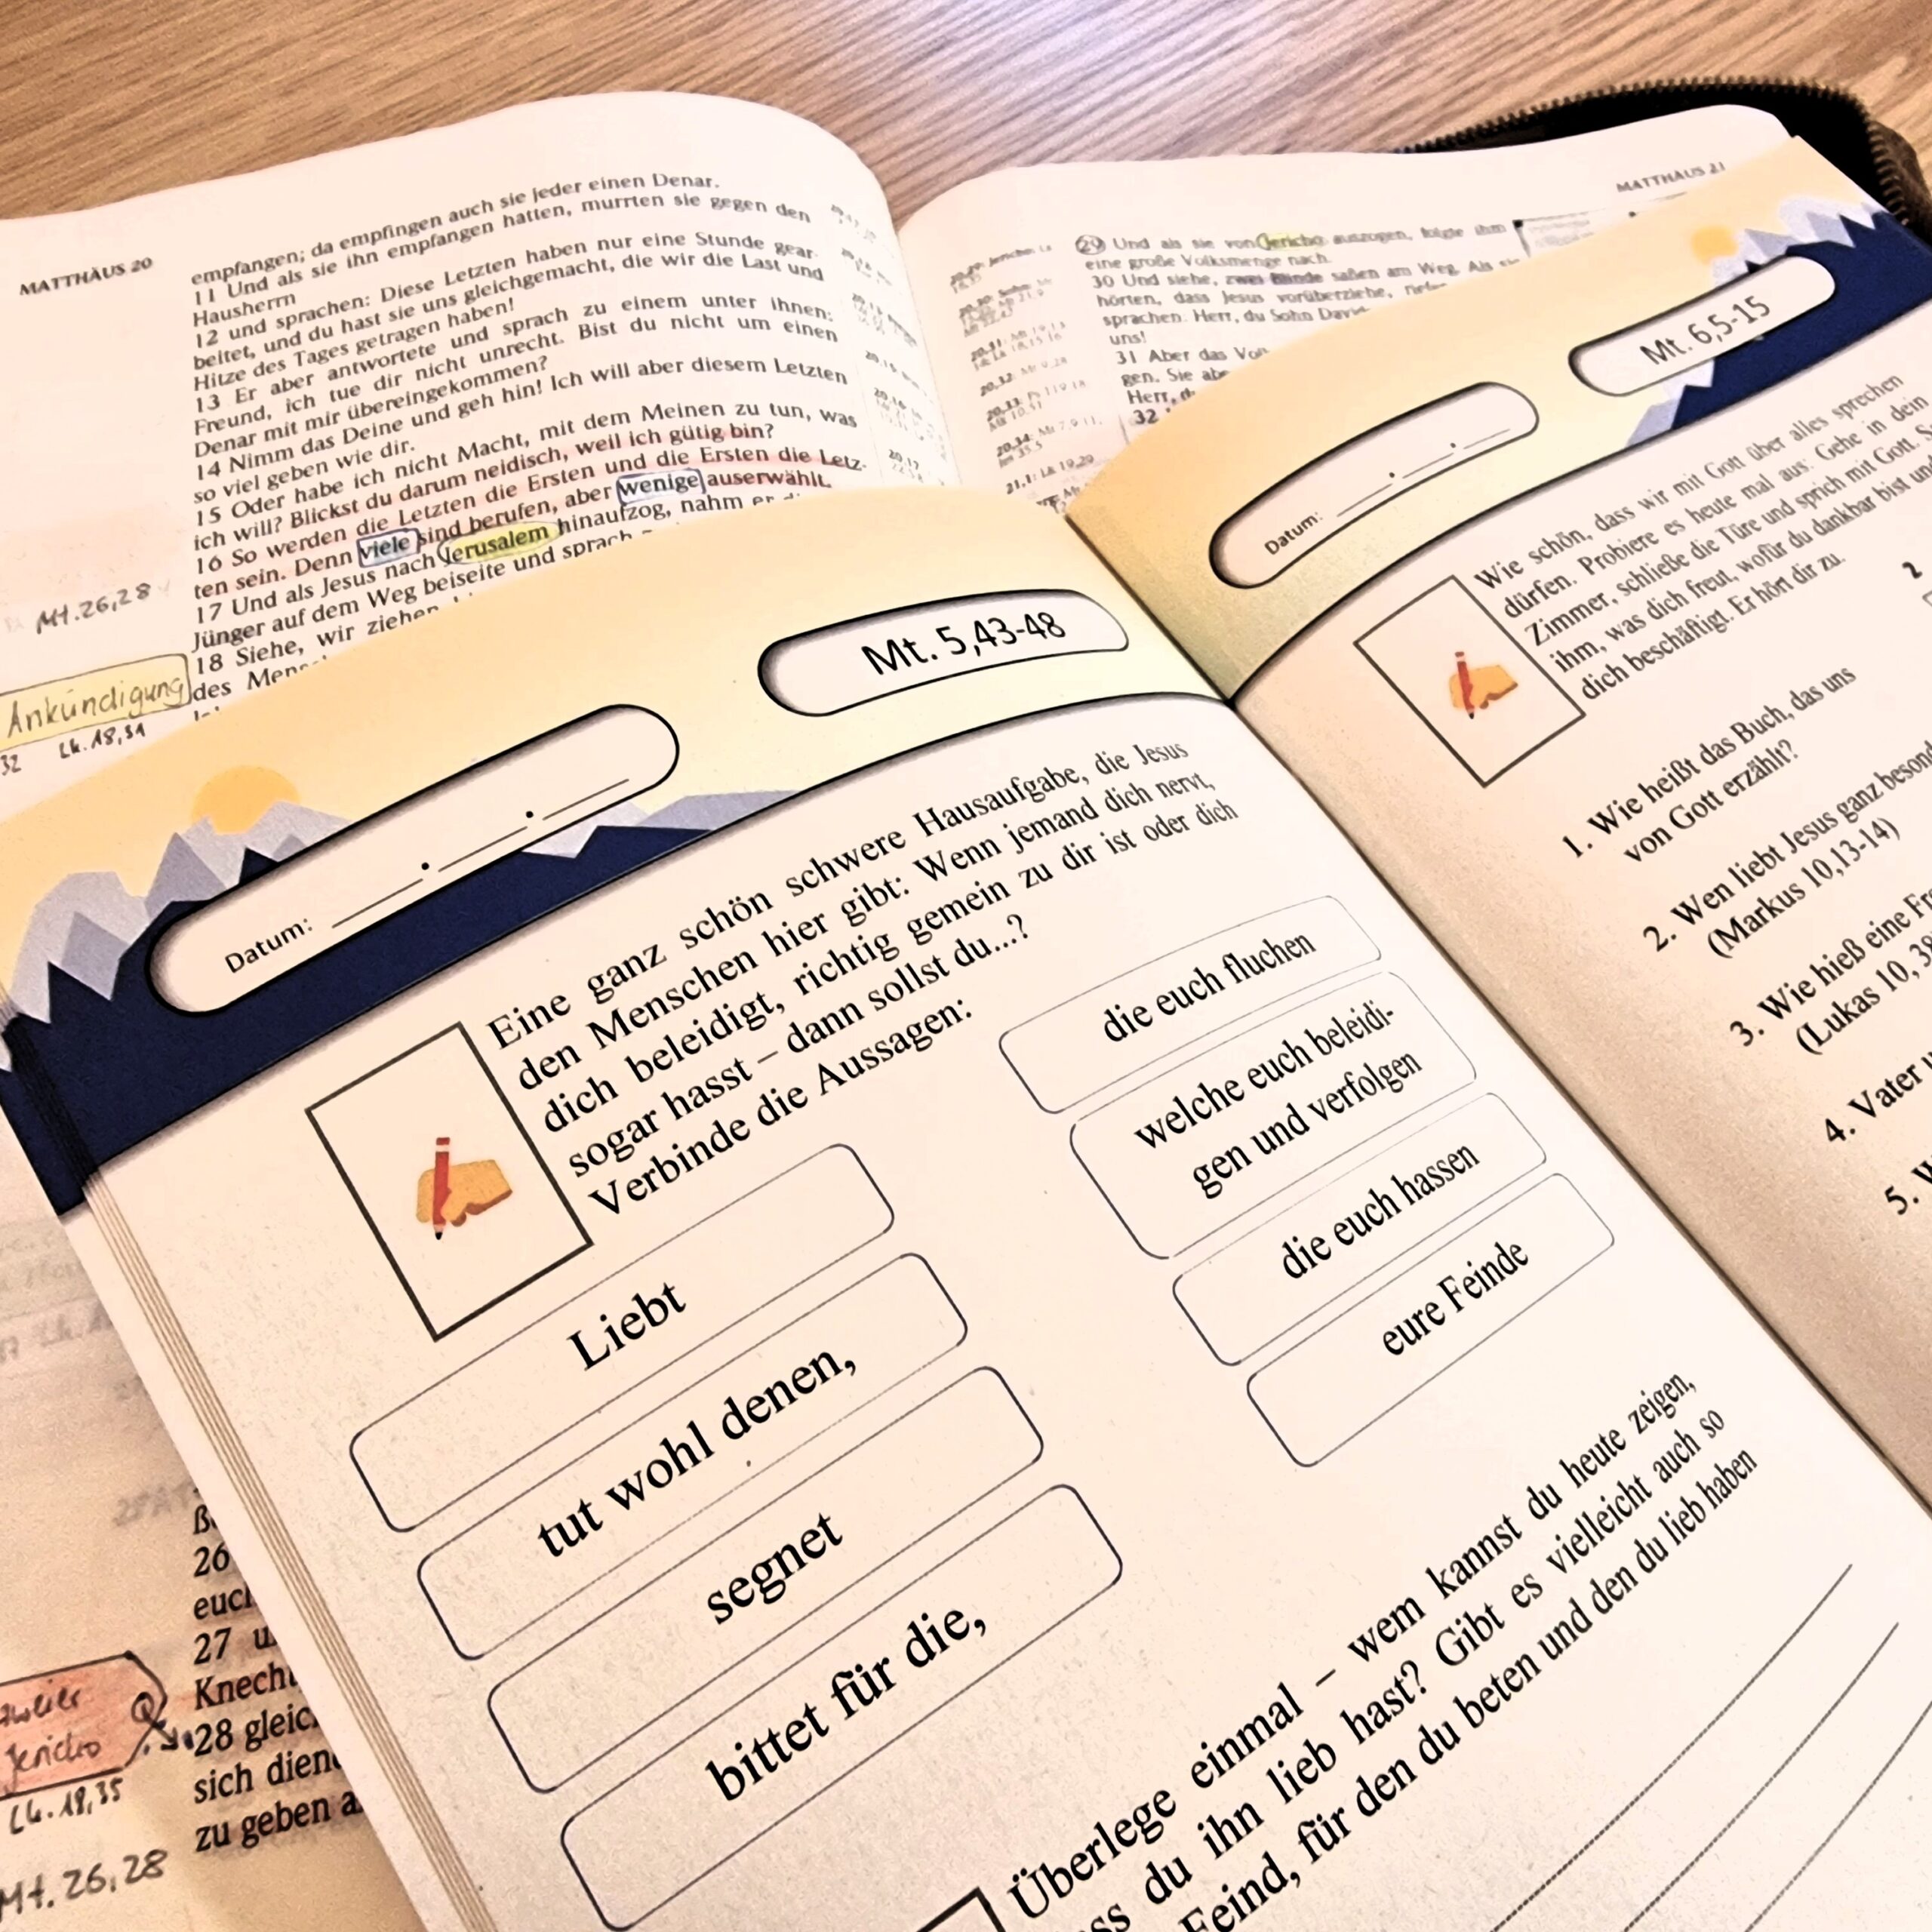 MATTHÄUS 20
empfangen; da empfingen auch sie jeder einen Denar.
11 Und als sie ihn empfangen hatten, murrten sie gegen den
Hausherrn
12 und sprachen: Diese Letzten haben nur eine Stunde gear-
beitet, und du hast sie uns gleichgemacht, die wir die Last und
Hitze des Tages getragen haben!
13 Er aber antwortete und sprach zu einem unter ihnen:
Freund, ich tue dir nicht unrecht. Bist du nicht um einen
Denar mit mir übereingekommen?
14 Nimm das Deine und geh hin! Ich will aber diesem Letzten
so viel geben wie dir.
15 Oder habe ich nicht Macht, mit dem Meinen zu tun, was
ich will? Blickst du darum neidisch, weil ich gütig bin?
16 So werden die Letzten die Ersten und die Ersten die Letz-
ten sein. Denn viele sind berufen, aber wenige auserwählt.
17 Und als Jesus nach Jerusalem hinaufzog, nahm er
Jünger auf dem Weg beiseite und sprach
18 Siehe, wir ziehen
des
Mt.26,28
Ankündigung
32 Lk.18,31
26
27
Knech
28 gleic
sich dien
zu geben a
Jericho
Lk.18,35
Mt.26,28
MATTHÄUS 21
29 Und als sie von Jericho auszogen, folgte ihm
eine große Volksmenge nach.
30 Und siehe, zwei Blinde saßen am Weg. Als sie
hörten, dass Jesus vorüberziehe,
sprachen: Herr, du Sohn David
uns!
31 Aber das Vol
gen. Sie abe
Herr, d
32
Datum:
Mt. 5,43-48
Eine ganz schön schwere Hausaufgabe, die Jesus
den Menschen hier gibt: Wenn jemand dich nervt,
dich beleidigt, richtig gemein zu dir ist oder dich
sogar hasst – dann sollst du...?
Verbinde die Aussagen:
Liebt
tut wohl denen,
segnet
bittet für die,
die euch fluchen
welche euch beleidi-
gen und verfolgen
die euch hassen
eure Feinde
Überlege einmal – wem kannst du heute zeigen,
ss du ihn lieb hast? Gibt es vielleicht auch so
Feind, für den du beten und den du lieb haben
Datum:
Mt. 6,5-15
Wie schön, dass wir mit Gott über alles sprechen
dürfen. Probiere es heute mal aus: Gehe in dein
Zimmer, schließe die Türe und sprich mit Gott. S
ihm, was dich freut, wofür du dankbar bist und
dich beschäftigt. Er hört dir zu.
2
1. Wie heißt das Buch, das uns
von Gott erzählt?
2. Wen liebt Jesus ganz besond
(Markus 10,13-14)
3. Wie hieß eine Fr
(Lukas 10, 38
4. Vater u
5. W